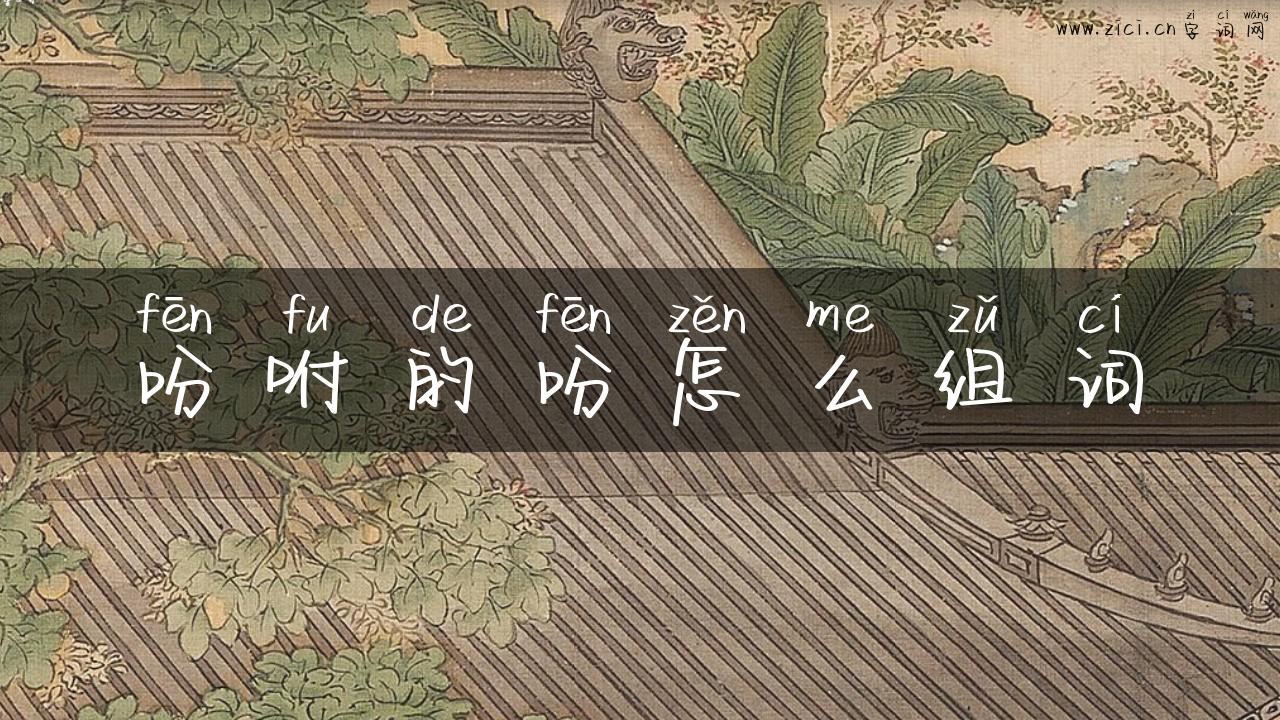 zì cí wǎng
www.zici.cn 字词网
fēn fu de fēn zěn me zǔ cí
吩咐的吩怎么组词